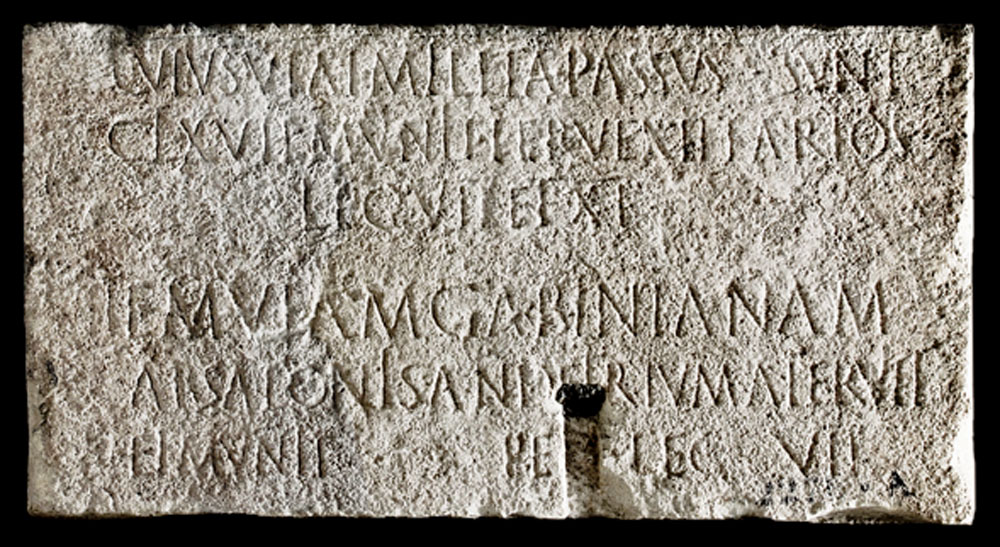 CVIVS VIAI MILLIA PASSVS SVNT
CLXVII MVNIIT PER VEXILLARIOS
LEG VII ET XI
ITEM VIAM GABINIANAM
AB SALONIS ANDETRIVM APERVIT
ET MVNIT PER LEG VII